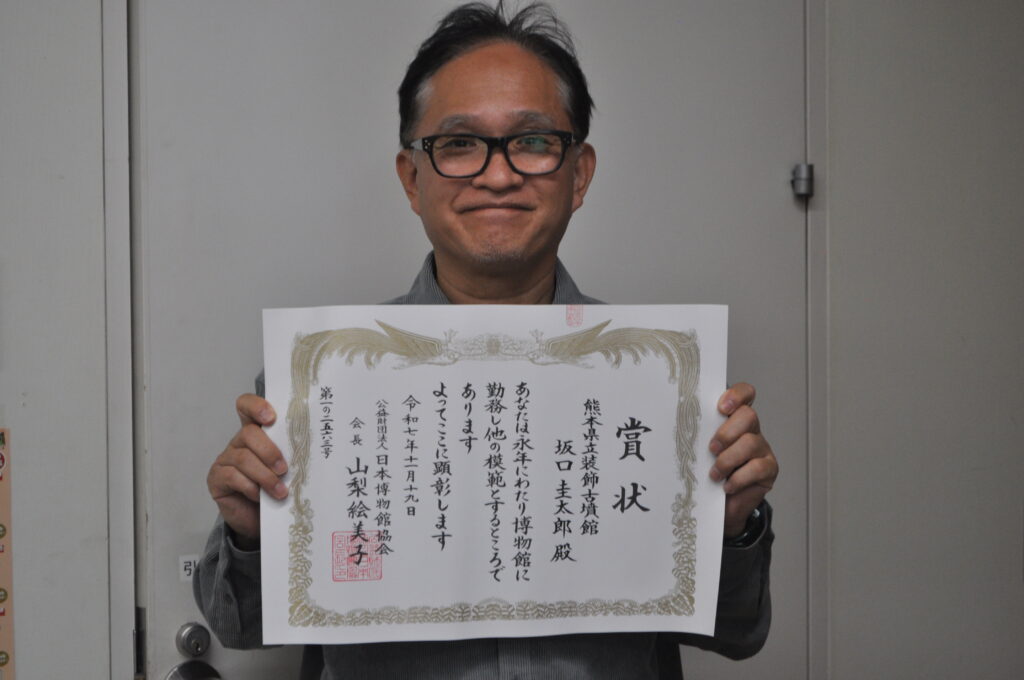 賞状
熊本県立装飾古墳館
坂口圭太郎殿
あなたは永年にわたり博物館に
勤務し他の模範とするところで
あります
よってここに顕彰します
令和七年十一月十九日
公益財団法人日本博物館協会
会長 山梨絵美子
第一の二五六三号
引